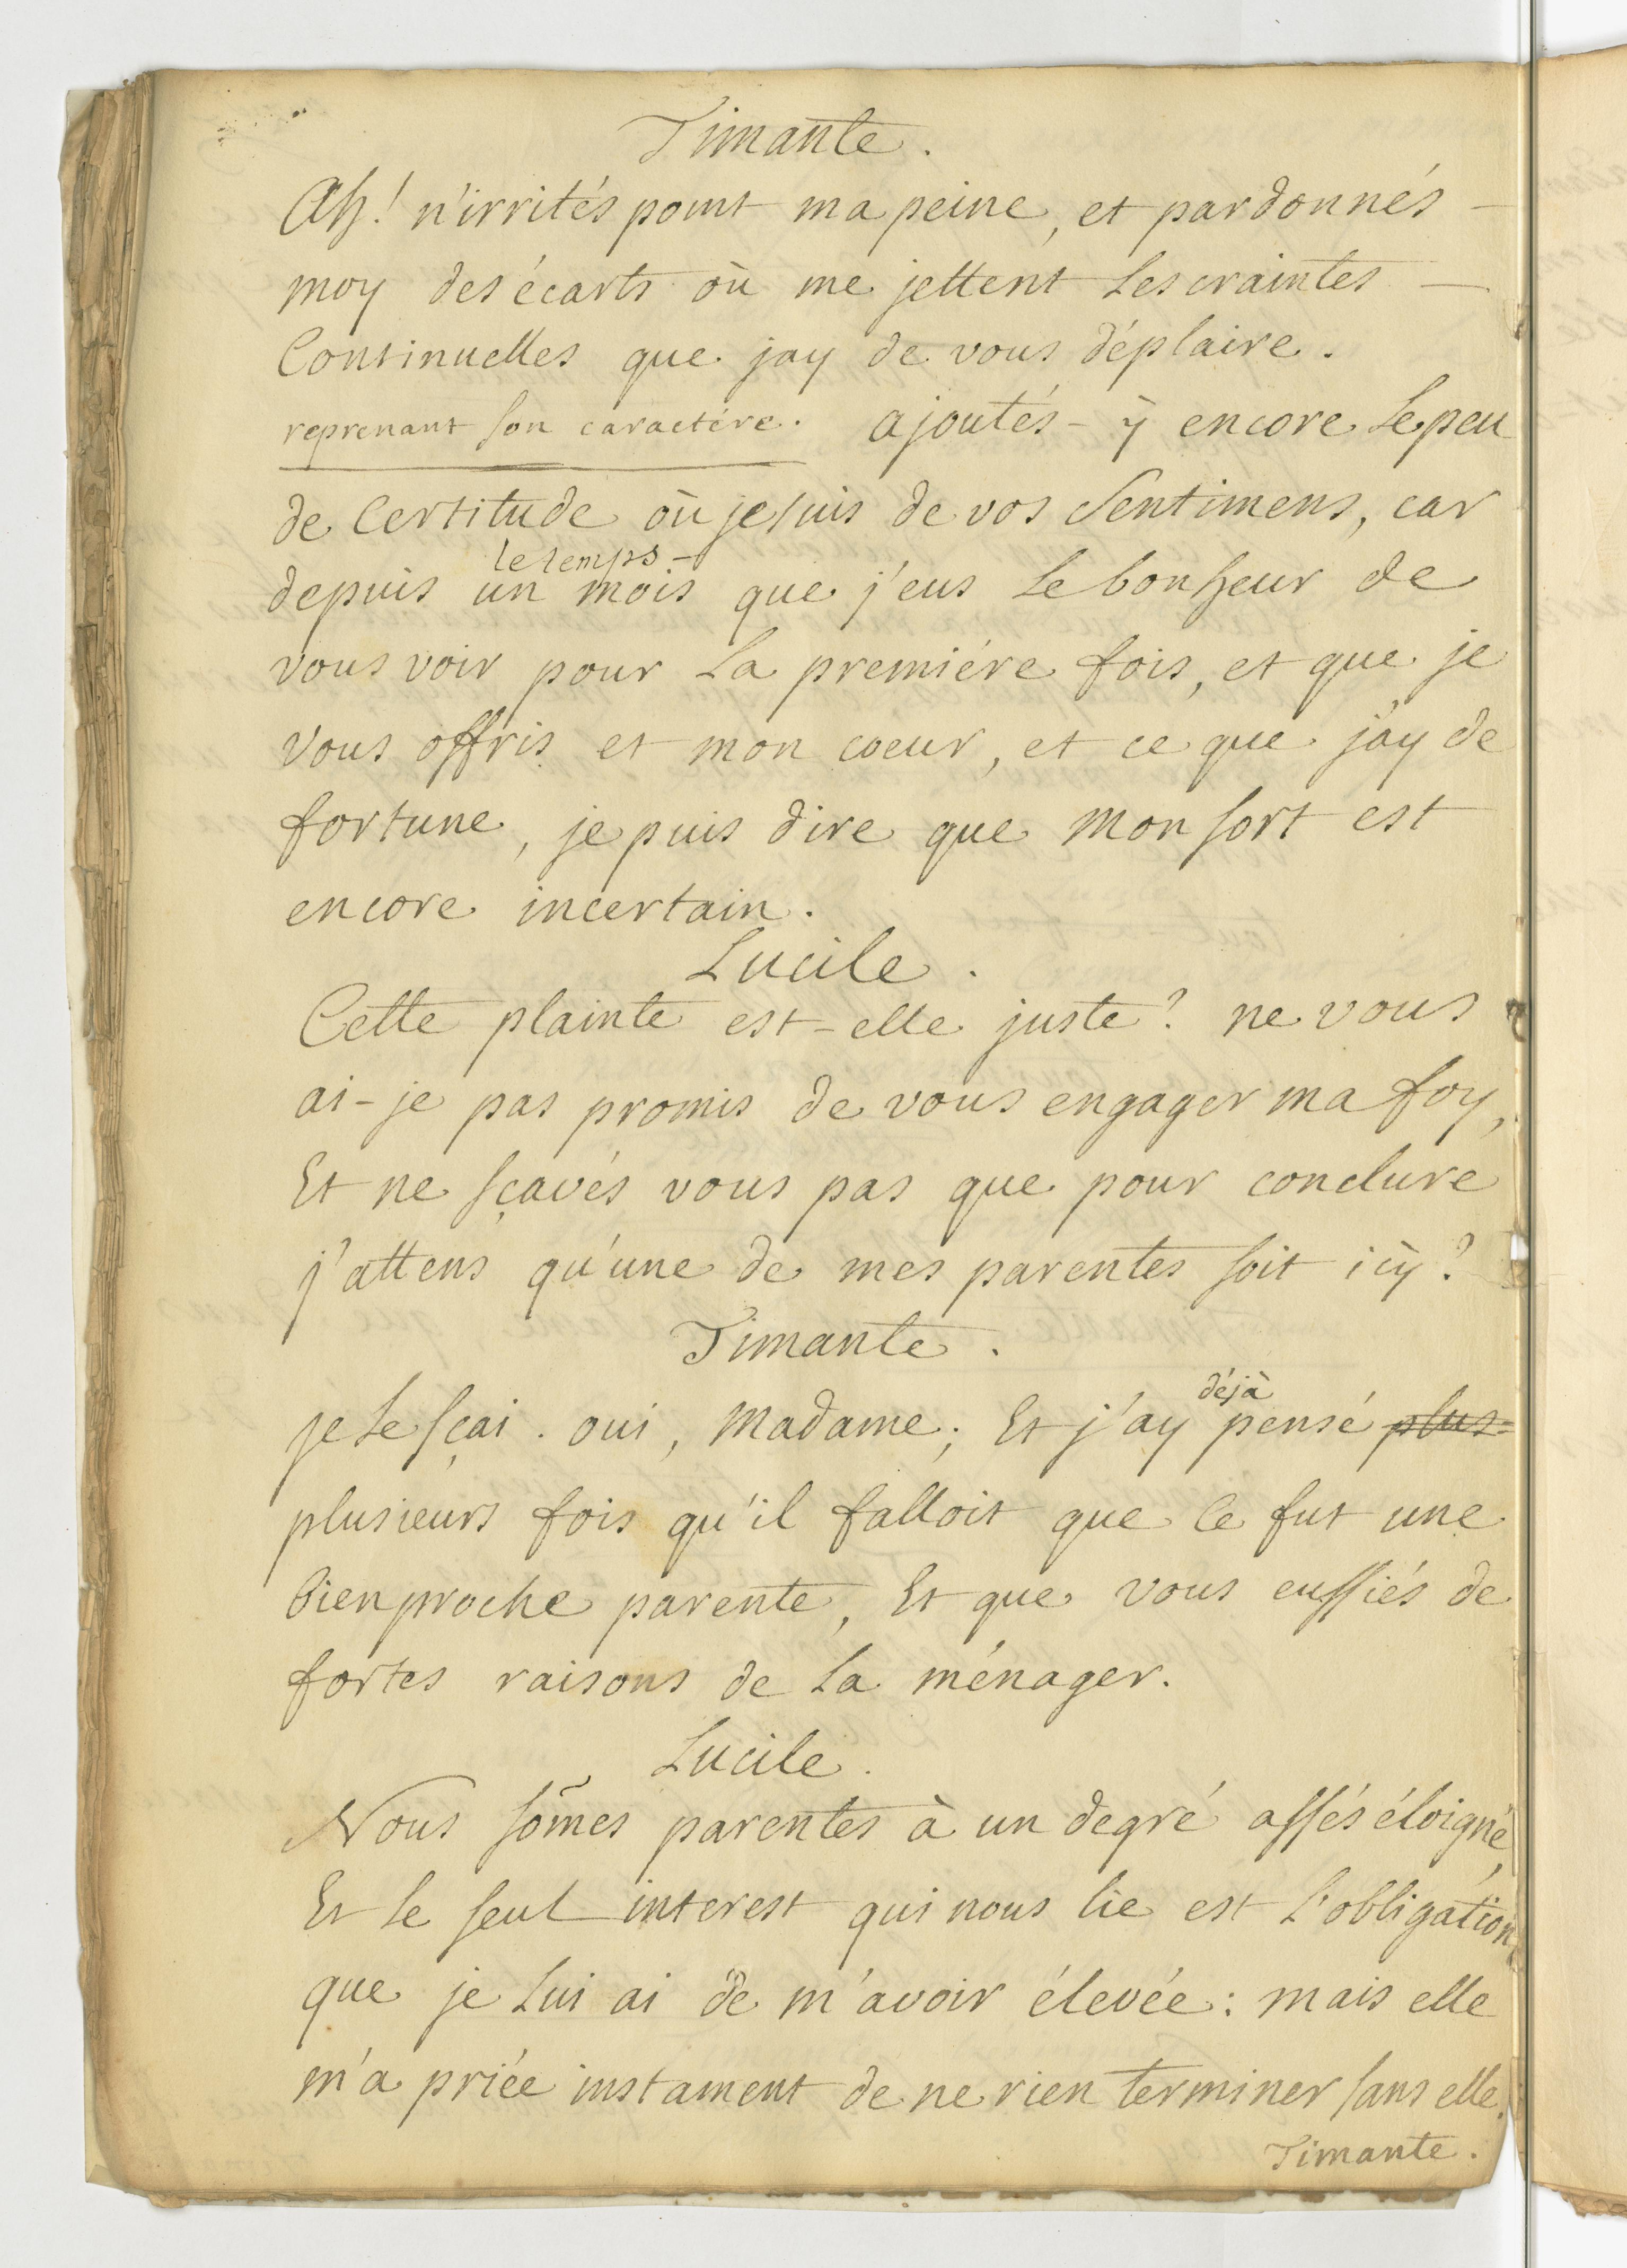 Timante.
Ah! n'irrités point ma peine, et pardonnés -
moy des écarts où me jettent les craintes -
Continuelles que jay de vous déplaire.
reprenant son caractére. ajoutés - ÿ encore le peu
de Certitude où je suis de vos Sentimens, car
le temps -
depuis un mois que j'eus le bonheur de
vous voir pour la premiére fois, et que je
vous offris et mon coeur, et ce que j'ay de
fortune, je puis dire que mon sort est
encore incertain.
Lucile.
Cette plainte est-elle juste? ne vous
ai-je pas promis de vous engager ma foy,
Et ne sçavés vous pas que pour conclure
j'attens qu'une de mes parentes soit icÿ?
Timante.
déjà
je le sçai. oui, Madame; Et j'ay pensé plus-
plusieurs fois qu'il falloit que ce fut une
bien proche parente, Et que vous eussiés de
fortes raisons de la ménager.
Lucile.
Nous som̃es parentes à un degré assés éloigné,
Et le seul interest qui nous lie est l'obligation
que je lui ai de m'avoir élevée: mais elle
m'a priée instament de ne rien terminer sans elle.
Timante.